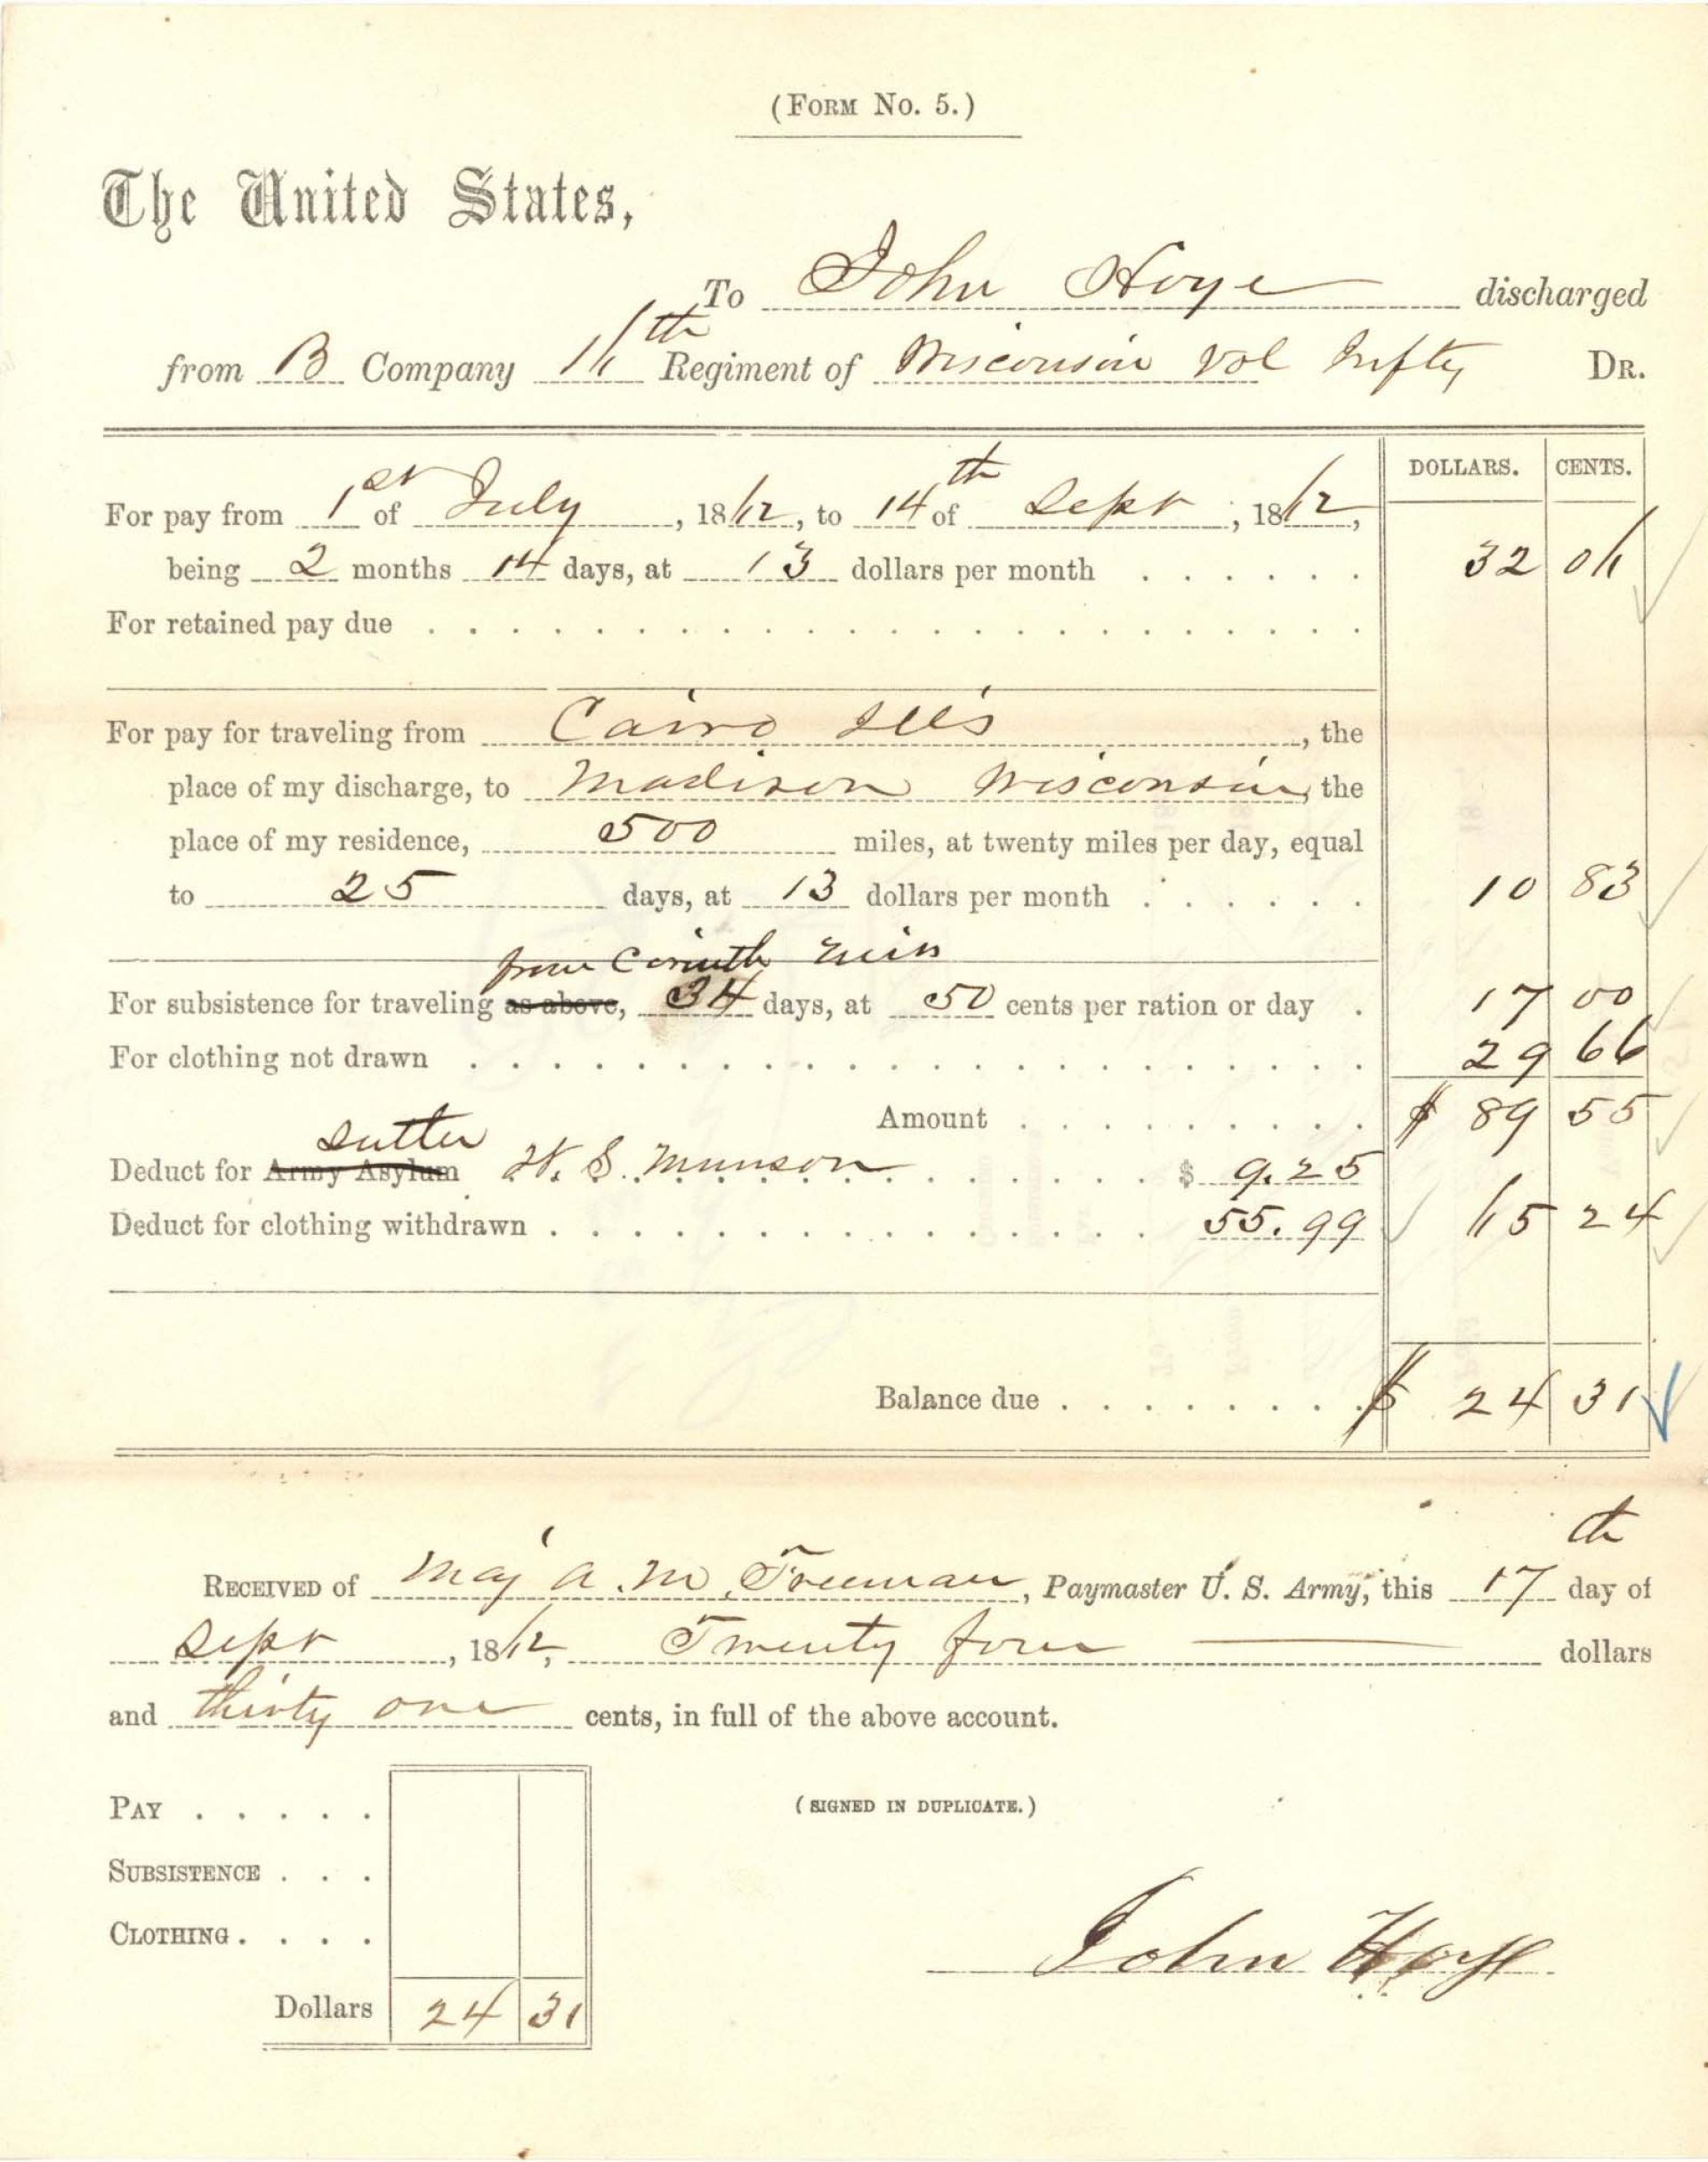 (FORM No. 5.)
The United States,
To John Hoye discharged
from B Company 16th Regiment of Wisconsin Vol Infty DR.
DOLLARS. CENTS.
For pay from 1st of July, 1862, to 14th of Sept, 1862,
being 2 months 14 days, at 13 dollars per month . . . . . . 32 06
For retained pay due . . . . . . . . . . . . . . . . . . . . . . .
For pay for traveling from Cairo Ills, the
place of my discharge, to Madison Wisconsin, the
place of my residence, 500 miles, at twenty miles per day, equal
to 25 days, at 13 dollars per month . . . . . . 10 83
from Corinth Miss
For subsistence for traveling as above, 34 days, at 50 cents per ration or day . 17 00
For clothing not drawn . . . . . . . . . . . . . . . . . . . . . . 29 66
Amount . . . . . . . . . $ 89 55
Sutler
Deduct for Army Asylum S. Munson . . . . . . $ 9.25
Deduct for clothing withdrawn . . . . . . . . . . . . . . . 55.99 65 24
Balance due . . . . . . . . $ 24 31
RECEIVED of Maj A. M. Freeman, Paymaster U. S. Army, this 17th day of
Sept, 1862, Twenty four dollars
and thirty one cents, in full of the above account.
PAY . . . . .
(SIGNED IN DUPLICATE.)
SUBSISTENCE . . .
CLOTHING . . . .
John Hoye
Dollars 24 31